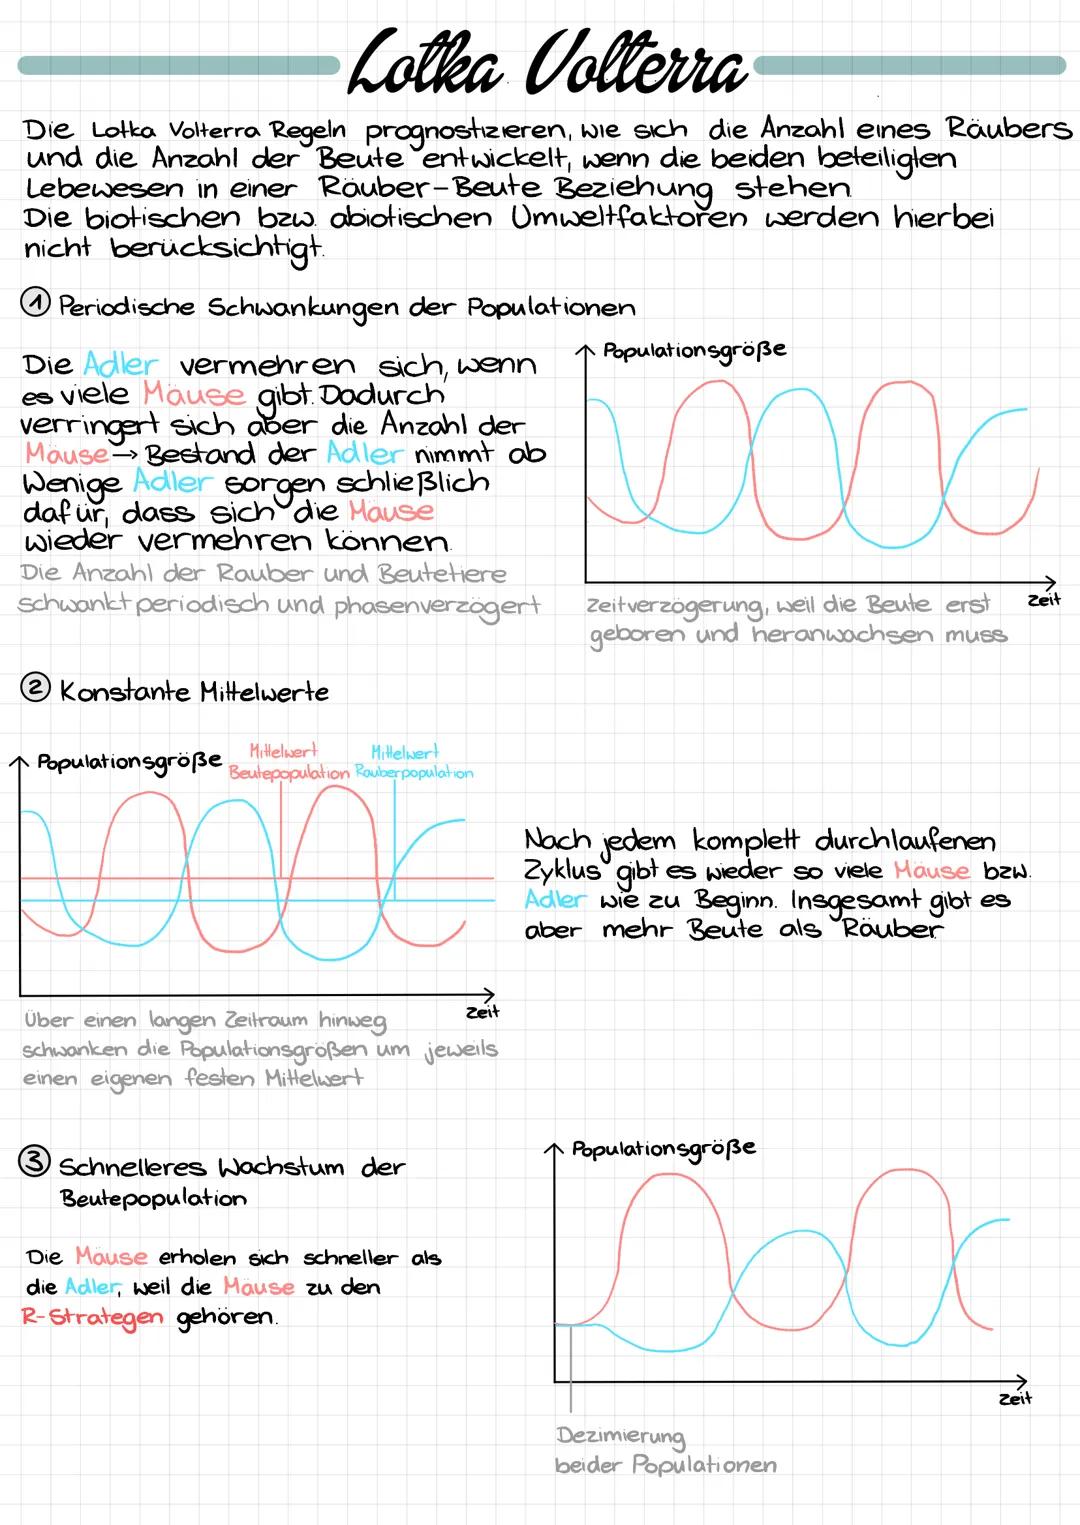 Lotka Volterra
Die Lotka Volterra Regeln prognostizieren, wie sich die Anzahl eines Räubers
und die Anzahl der Beute entwickelt, wenn die beiden beteiligten
Lebewesen in einer Räuber-Beute Beziehung stehen.
Die biotischen bzw. abiotischen Umweltfaktoren werden hierbei
nicht berücksichtigt.
① Periodische Schwankungen der Populationen
Die Adler vermehren sich, wenn
es viele Mäuse gibt. Dadurch
verringert sich aber die Anzahl der
Mäuse → Bestand der Adler nimmt ab
Wenige Adler sorgen schließlich
dafür, dass sich die Mäuse
wieder vermehren können.
Die Anzahl der Räuber und Beutetiere
schwankt periodisch und phasenverzögert
Populationsgröße
Zeit
Zeitverzögerung, weil die Beute erst
geboren und heranwachsen muss
② Konstante Mittelwerte
Populationsgröße
Mittelwert
Beutepopulation
Mittelwert
Räuberpopulation
Zeit
Über einen langen Zeitraum hinweg
schwanken die Populationsgrößen um jeweils
einen eigenen festen Mittelwert
Nach jedem komplett durchlaufenen
Zyklus gibt es wieder so viele Mäuse bzw.
Adler wie zu Beginn. Insgesamt gibt es
aber mehr Beute als Räuber.
③ Schnelleres Wachstum der
Beutepopulation
Die Mäuse erholen sich schneller als
die Adler, weil die Mäuse zu den
R-Strategen gehören.
Populationsgröße
Zeit
Dezimierung
beider Populationen